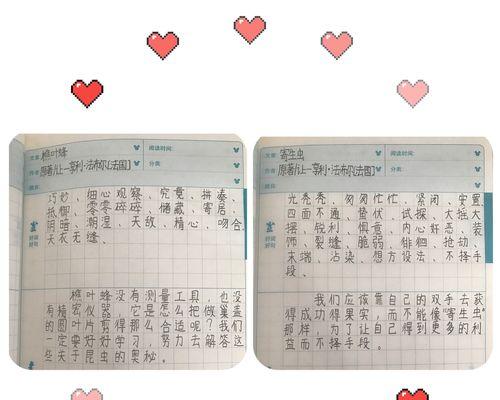 文章: 樵叶蜂
阅读时间:
原著/让-亨利·法布尔[法国]
分类:
好词
好句
巧妙、细心观察、究竟、拼凑、
抵御、零零碎碎、储藏、寄居、
阴暗、潮湿、天敌、精心、吻合、
天衣无缝、
樵叶蜂没有测量工具,也没
有仪器,它是怎么把做巢盖
的圆叶片剪得那么适合呢?我们
一定要好好学习,努力去解答这
些关于昆虫的奥秘。
文章: 寄生虫
阅读时间:
原著/让-亨利·法布尔[法国]
分类:
好词
好句
光秃秃、匆匆忙忙、紧闭、安置、
四面不通、蛰伏、试探、大摇大
摆、锐利、惬意、内心奸恶、装
饰、裂缝、脆弱、徘徊、抢劫、
末端、沾染、想方设法、不择手
段、
我们应该靠自己的双手去获
得成功得果实,而不能像“寄生虫”
那样,为了让自己得到更多的利
益而不择手段。